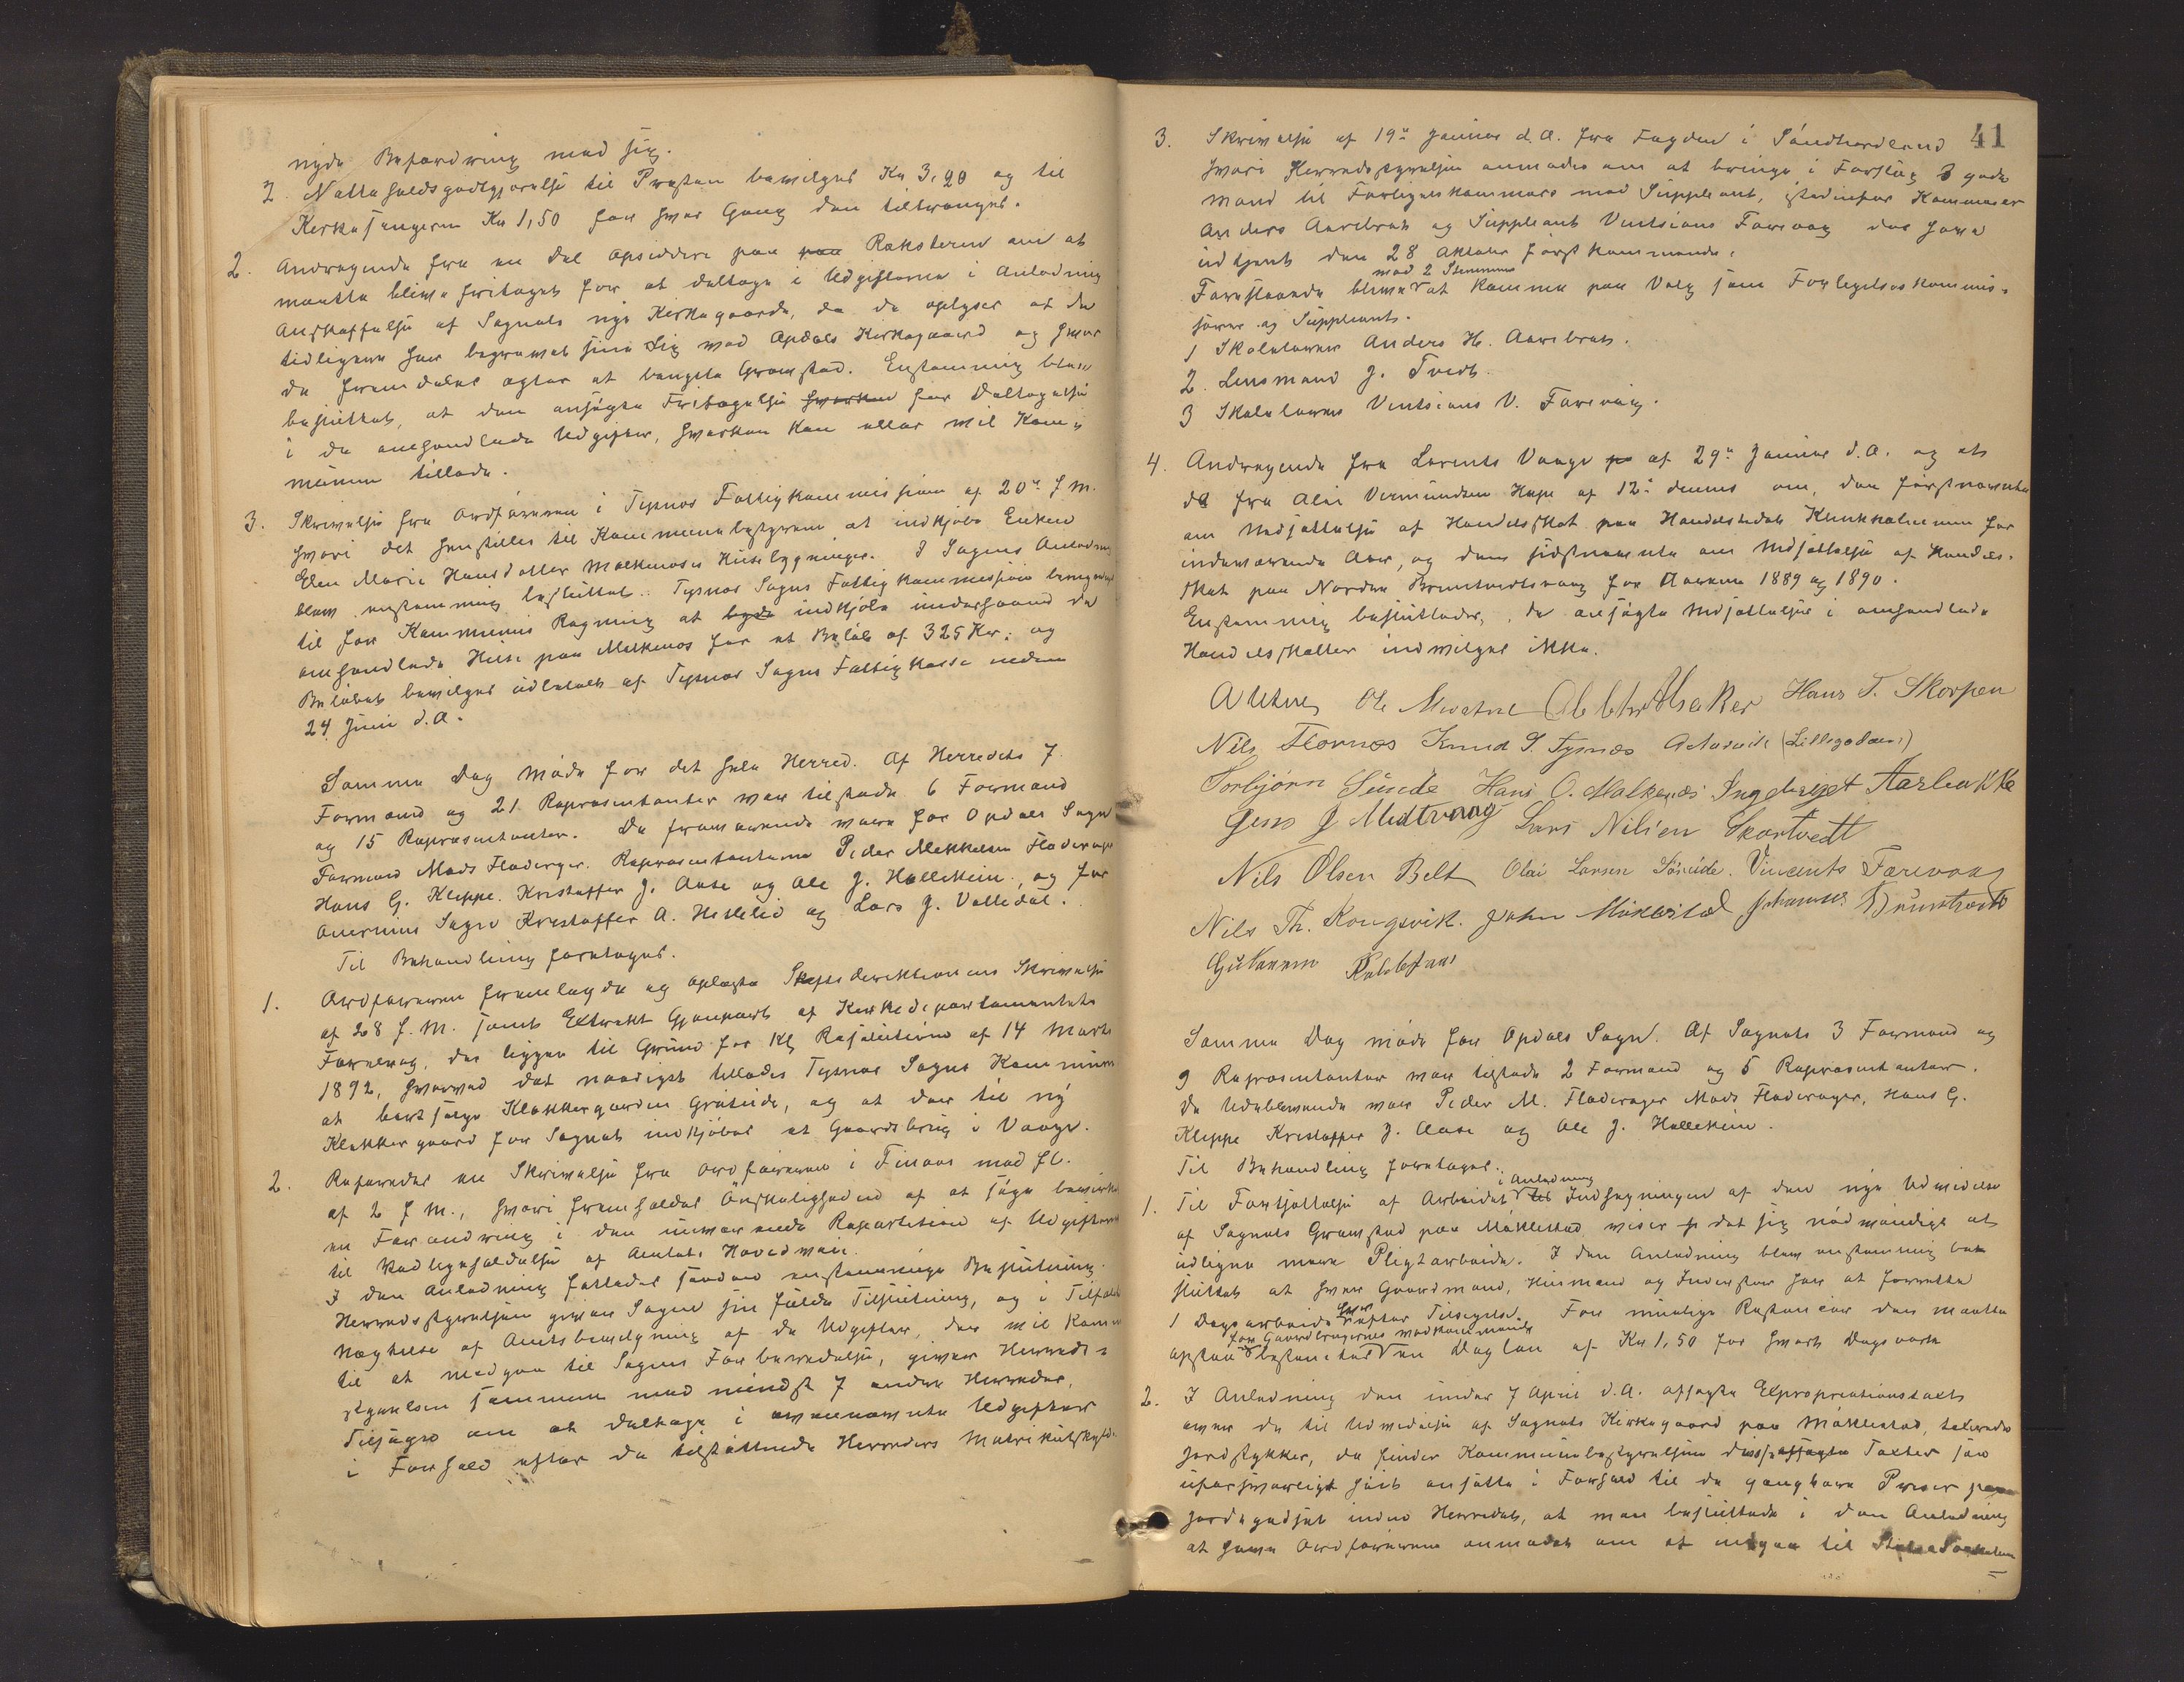 nyde Befordring med sig.
2. Natteholdsgodtgjørelse til Præsten bevilges Kr 3,20 og til
Kirkesangeren Kr 1,50 for hver Gang den tiltrænges.
2. Andragende fra en Del Opsiddere paa paa Raksteren om at
maatte blive fritaget for at deltage i Udgifterne i Anledning
Anskaffelse af Sognets nye Kirkegaarde, da de oplyser at de
tidligere har begravet sine Lig ved Opdals Kirkegaard og hvor
de fremdeles agter at benytte Gravsted. Enstemmig blev
besluttet, at den ansøgte Fritagelse hverken for Deltagelse
i de omhandlede Udgifter, hverken kan eller vil Kom-
munen tillade.
3. Skrivelse fra Ordføreren i Tysnes Fattigkommission af 20de f.M.
hvori det henstilles til Kommunebestyreren at indkjøbe Enken
Elen Marie Hansdatter Malkenæs's Husebygninger. I Sagens Anledn.
blev enstemmig besluttet: Tysnæs Sogns Fattigkommission bemyndiges
til for Kommunens Regning at byde indkjøbe underhaand de
omhandlede Huse paa Malkenes for et Beløb af 325 Kr. og
Beløbet bevilges udbetalt af Tysnæs Sogns Fattigkasse inden
24 Juni d.A.
Samme Dag Møde for det hele Herred. Af Herredets 7
Formænd og 21 Repræsentanter var tilstede 6 Formænd
og 15 Repræsentanter. De fraværende være for Opdals Sogn
Formand Mads Fladerager. Repræsentanterne Peder Mekkelsen Fladerager
Hans G. Kleppe. Kristoffer J. Aase og Ole J. Hallekleiv, og for
Onerims Sogn Kristoffer A. Hillelid og Lars J. Valledal.
Til Behandling foretoges.
1. Ordføreren fremlagde og oplæste Stiftsdirektionens Skrivelse
af 28 f.M. samt Extrakt Gjenpart af Kirkedepartementets
Foredrag, der ligger til Grund for Kgl Resolution af 14 Marts
1892, hvorved det naadigst tillades Tysnæs Sogns Kommune
at bortsælge Klokkergaarden Gråteide, og at der til ny
Klokkergaard for Sognet indkjøbes et Gaardsbrug i Vaage.
2. Refereredes en Skrivelse fra Ordføreren i Finaas med fl.
af 2 f M., hvori fremholdes Ønskeligheden af at søge bevirket
en Forandring i den nuværende Repartition af Udgifterne
til Vedligeholdelse af Amtets Hovedveie.
I den Anledning fattedes saadan enstemmige Beslutning.
Herredsstyrelsen giver Sagen sin fulde Tilslutning, og i Tilfælde
Nægtelse af Amtsbevilgning af de Udgifter, der vil komme
til at medgaa til Sagens Forberedelse, giver Herreds-
styrelsen sammen med mindst 7 andre Herreder,
Tilsagn om at deltage i ovennævnte Udgifter
i Forhold efter de tilstøttende Herreders Matrikulskyld.
41
3. Skrivelse af 19de Januar d.A. fra Fogden i Søndhordland
hvori Herredsstyrelsen anmodes om at bringe i Forslag 3 gode
Mænd til Forligelseskommissær med Suppleant, istedenfor Kommissær
Anders Aarebrot og Suppleant Vintsians Farevaag der have
udtjent den 28 Oktober førstkommende.
Forestaaende bliver med 2 Stemmer at komme paa Valg som Forligelseskommis-
særer og Suppleant.
1 Skolelærer Anders H. Aarebrot.
2. Lensmand J. Tvedt.
3 Skolelærer Vintsians V. Farevaag.
4. Andragende fra Lorents Vaage pr af 29de Januar d.A. og et
do fra Olai Vermundsen Hope af 12te dennes om, den førstnævnte
om Nedsættelse af Handelsskat paa Handelsstedet Klenkholmen for
indeværende Aar, og den sidstnævnte om Nedsættelse af Handels-
skat paa Nordre Bruntveitsvaag for Aarene 1889 og 1890.
Enstemmig besluttedes, de ansøgte Nedsættelser i omhandlede
Handelsskatter indvilges ikke.
Ole Mevatne Hans T. Skorpen
Nils Flornes Knud S. Tysnæs (Lillegodøen)
Torbjørn Sunde Hans O. Malkenæs Ingebrigt Aarbakke
Jens J Medtvaag Lars Nilsen Skartvedt
Nils Olsen Belt Olai Larsen Søreide. Vincents Farevaag
Nils Th. Kongsvik. John Møklestad Johannes Bruntveit
Samme Dag møde for Opdals Sogn. Af Sognets 3 Formænd og
9 Repræsentanter var tilstede 2 Formænd og 5 Repræsentanter.
De Udeblevende var Peder M. Fladerager Mads Fladerager, Hans G.
Kleppe Kristoffer J. Aase og Ole J. Hallekleiv.
Til Behandling foretoges:
1. Til Fortsættelse af Arbeidet i Anledning til Indhegningen af den nye Udvidelse
af Sognets Gravsted paa Møklestad viser det sig nødvendigt at
udligne mere Pligtarbeide. I den Anledning blev enstemmig be-
sluttet at hver Gaardmand, Husmand og Inderster har at forrette
1 Dagsarbeide hver efter Tilsigelse. For mulige Restancer der maatte
opstaa for Gaardbrugernes vedkommende bestemtes en Dagløn af Kr 1,50 for hvert Dagsværk
2. I Anledning den under 7 April d.A. afsagte Expropriationstaxt
over de til Udvidelse af Sognets Kirkegaard paa Møklestad, takserede
Jordstykker, da finder Kommunebestyrelsen disse afsagte Taxter saa
uforsvarligt høit ansatte i Forhold til de gangbare Priser paa
Jordegodset inden Herredet, at man besluttede i den Anledning
at have Ordføreren anmodet om at indgaa til